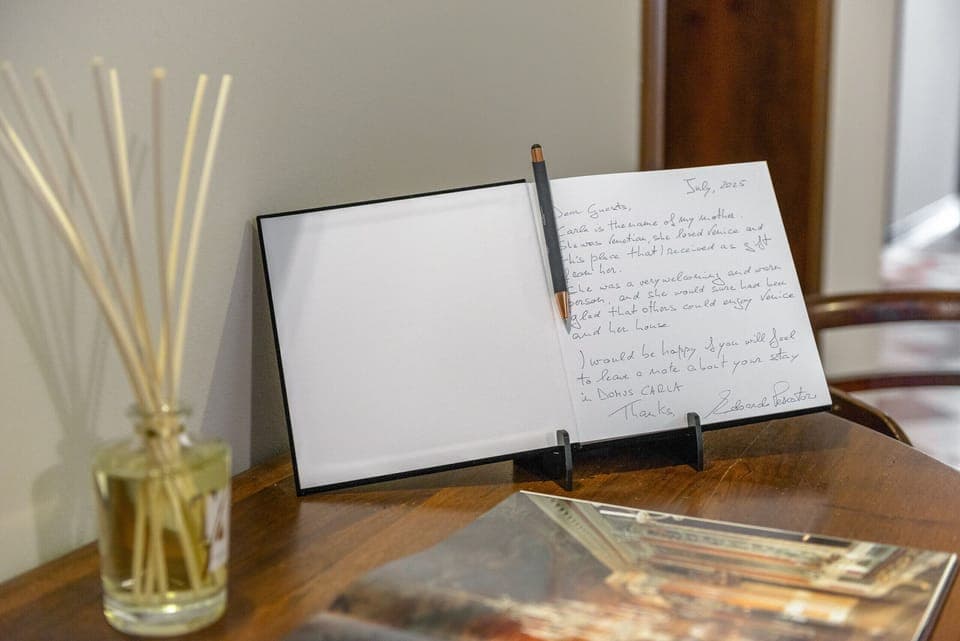 July, 2025
Dear Guests,
Carla is the name of my mother.
She was Venetian, she loved Venice and
this place that I received as gift
from her.
She was a very welcoming and warm
person, and she would sure had been
glad that others could enjoy Venice
and her house
I would be happy if you will feel
to leave a note about your stay
in DOMUS CARLA
Thanks
Edoardo